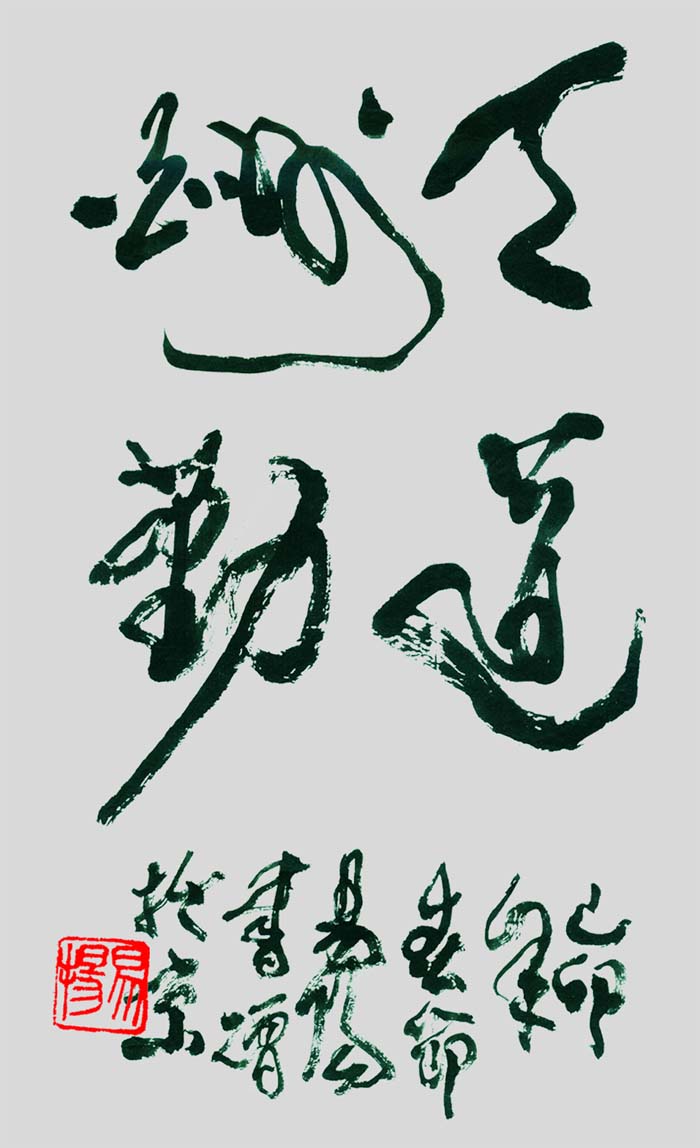 天道
酬勤
己卯
年
春節
易揚
書贈
於京
易揚